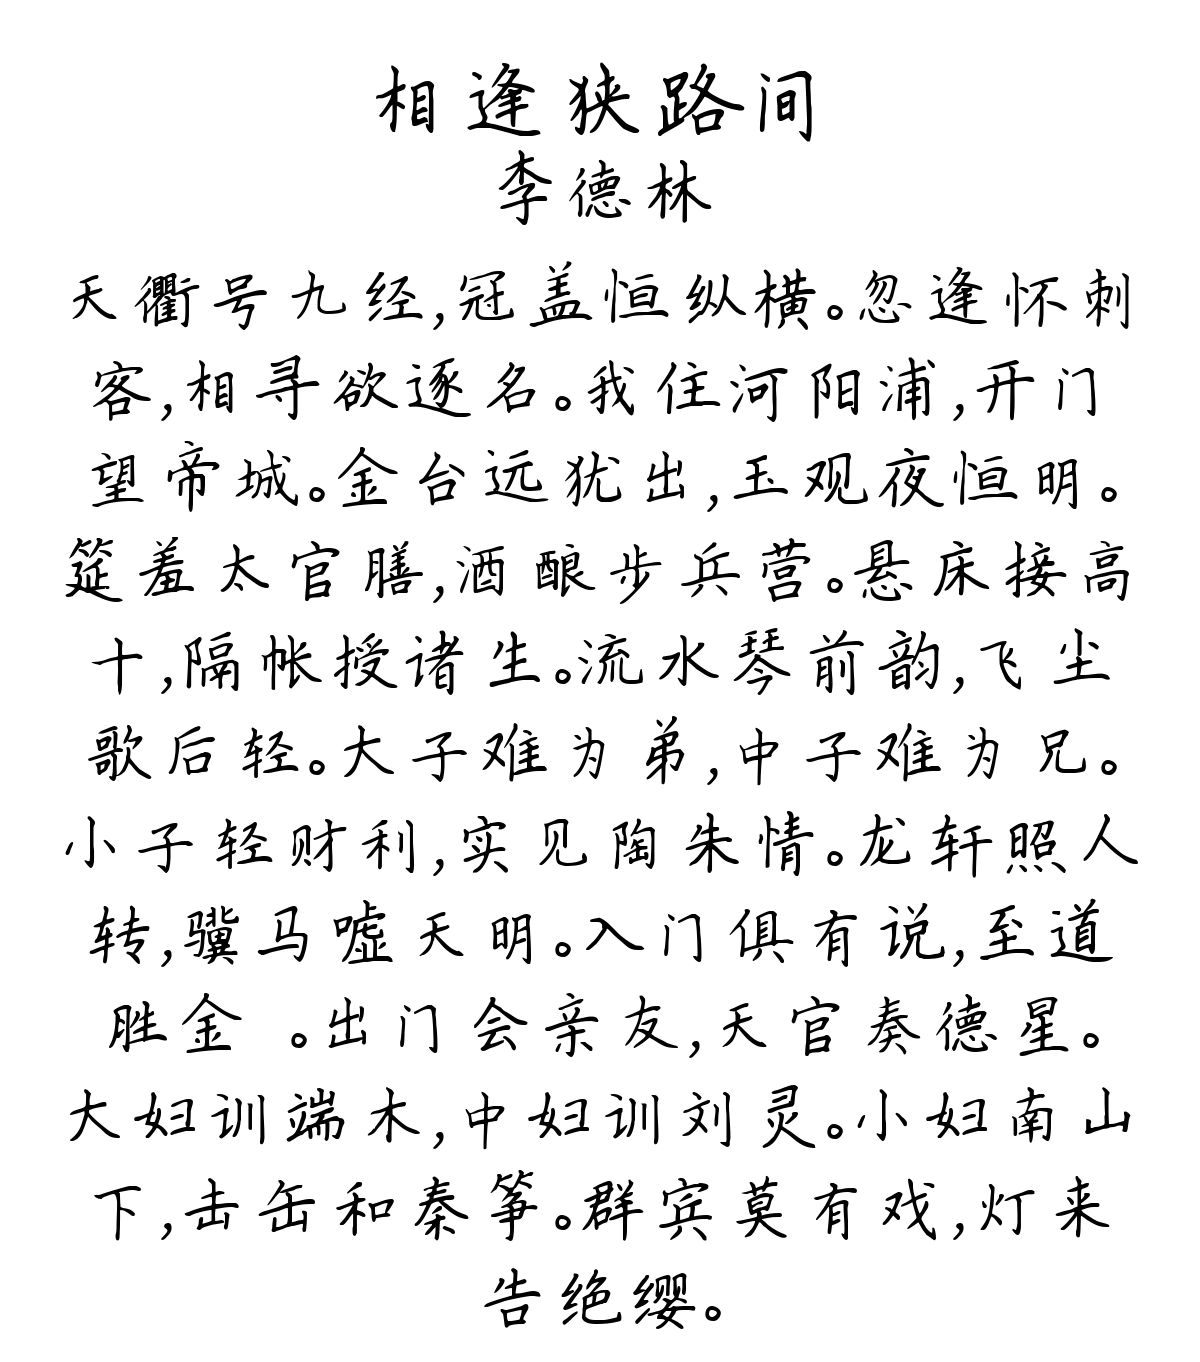 相逢狭路间
李德林
天衢号九经,冠盖恒纵横。忽逢怀刺
客,相寻欲逐名。我住河阳浦,开门
望帝城。金台远犹出,玉观夜恒明。
筵羞太官膳,酒酿步兵营。悬床接高
十,隔帐授诸生。流水琴前韵,飞尘
歌后轻。大子难为弟,中子难为兄。
小子轻财利,实见陶朱情。龙轩照人
转,骥马嘘天明。入门俱有说,至道
胜金 。出门会亲友,天官奏德星。
大妇训端木,中妇训刘灵。小妇南山
下,击缶和秦筝。群宾莫有戏,灯来
告绝缨。